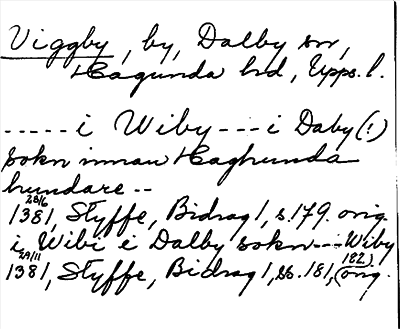 Viggby, by, Dalby sn,
Hagunda hd, Upps. l.
----- i Wiby --- i Daby (!)
sokn innan Haghunda
hundare --
28/6
1381, Styffe, Bidrag 1, s. 179. orig.
i Wibi i Dalby sokn --- Wiby
29/11
1381, Styffe, Bidrag 1, ss. 181, 182) (orig.